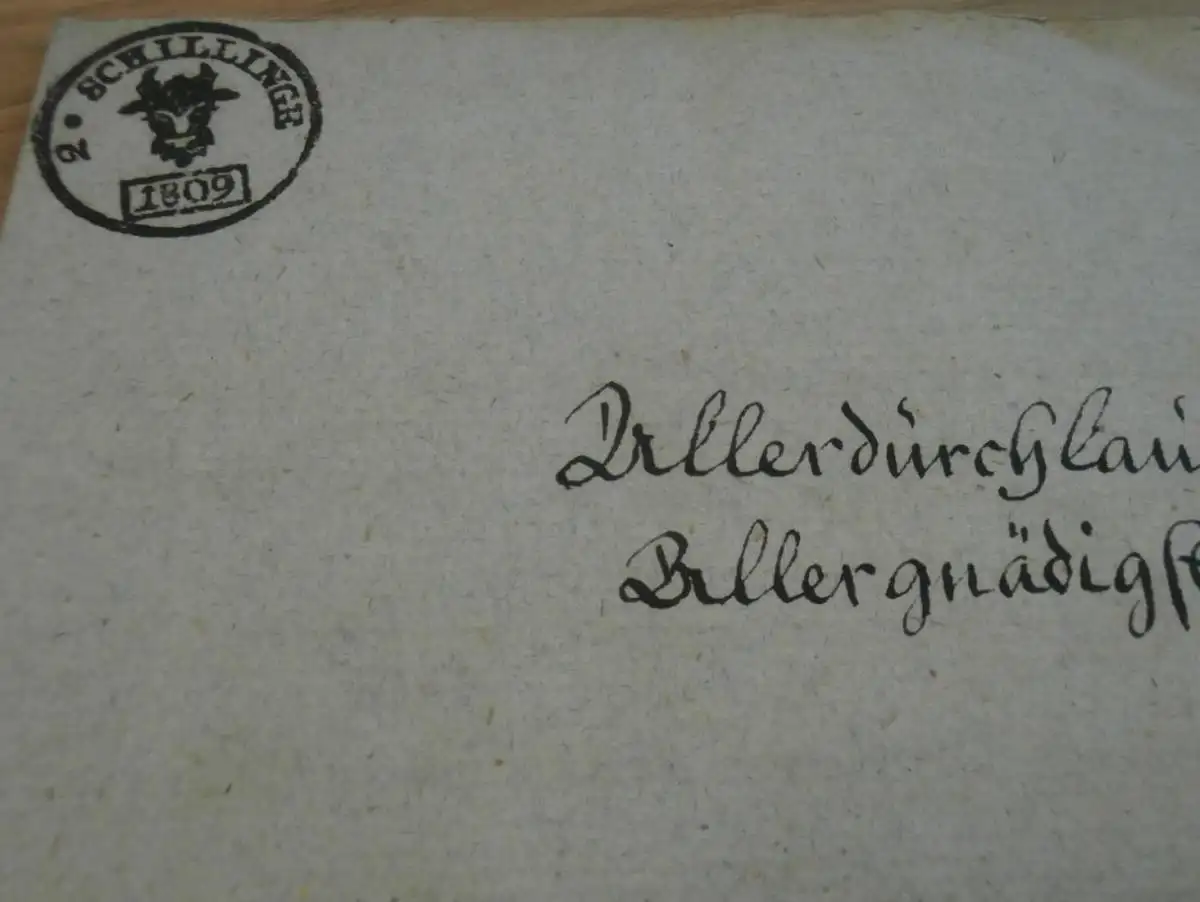 2 • SCHILLINGE
1809
Allerdürchlaü
Allergnädigst